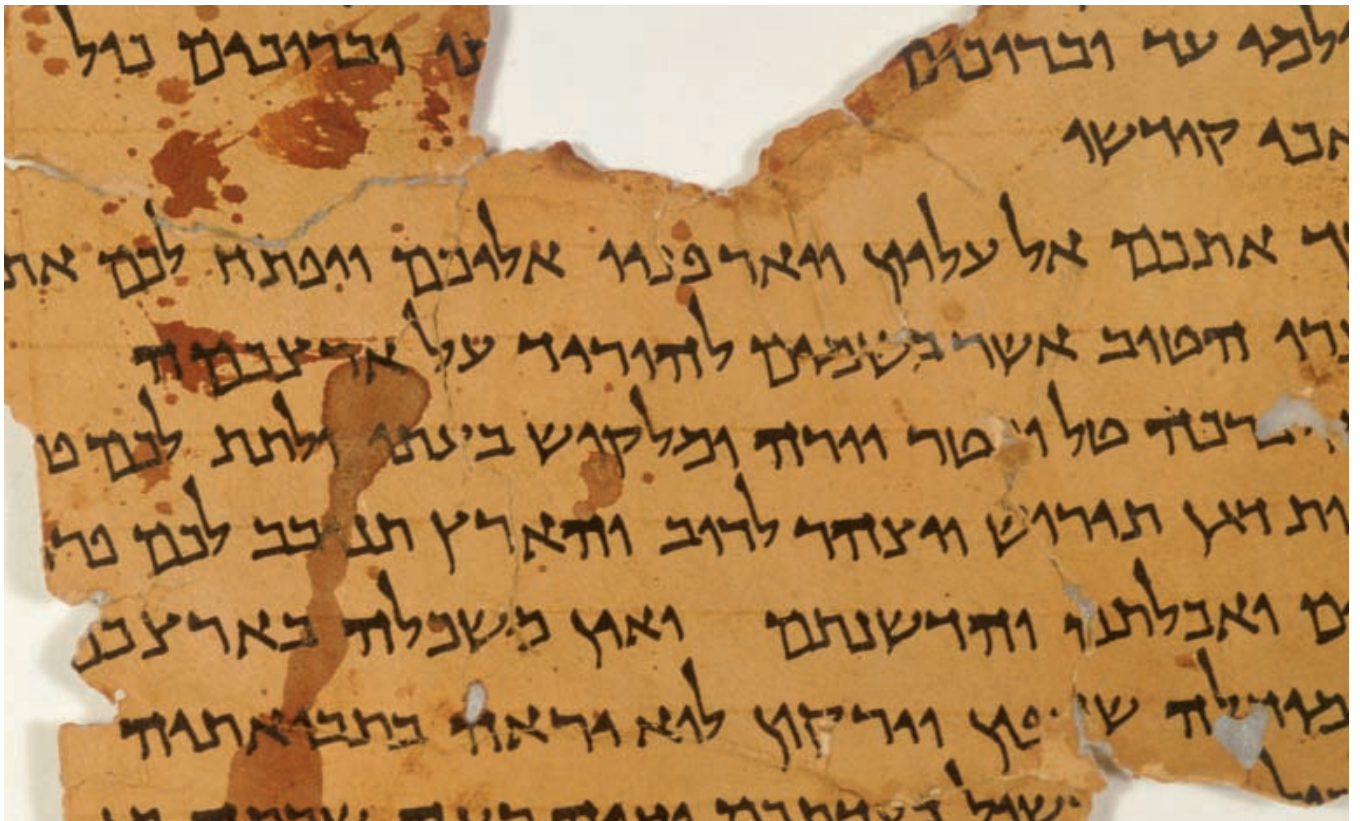 עולמי עד וברוכים וברוכים כול
אכי קודשו
ך אתכם אל עליון ויאר פניו אליכם ויפתח לכם את
צרו הטוב אשר בשמים להוריד על ארצכם
ברכה טל ומטר יורה ומלקוש בעתו ולתת לכם פ
ות דגן תירוש ויצהר לרוב והארץ תנובב לכם פרי
ים ואכלתם והדשנתם ואין משכלה בארצכם
מוחלה שידפון וירקון לוא יראה בתבואתיה
ישול בעדתכם וחיה רעה שבתה מן